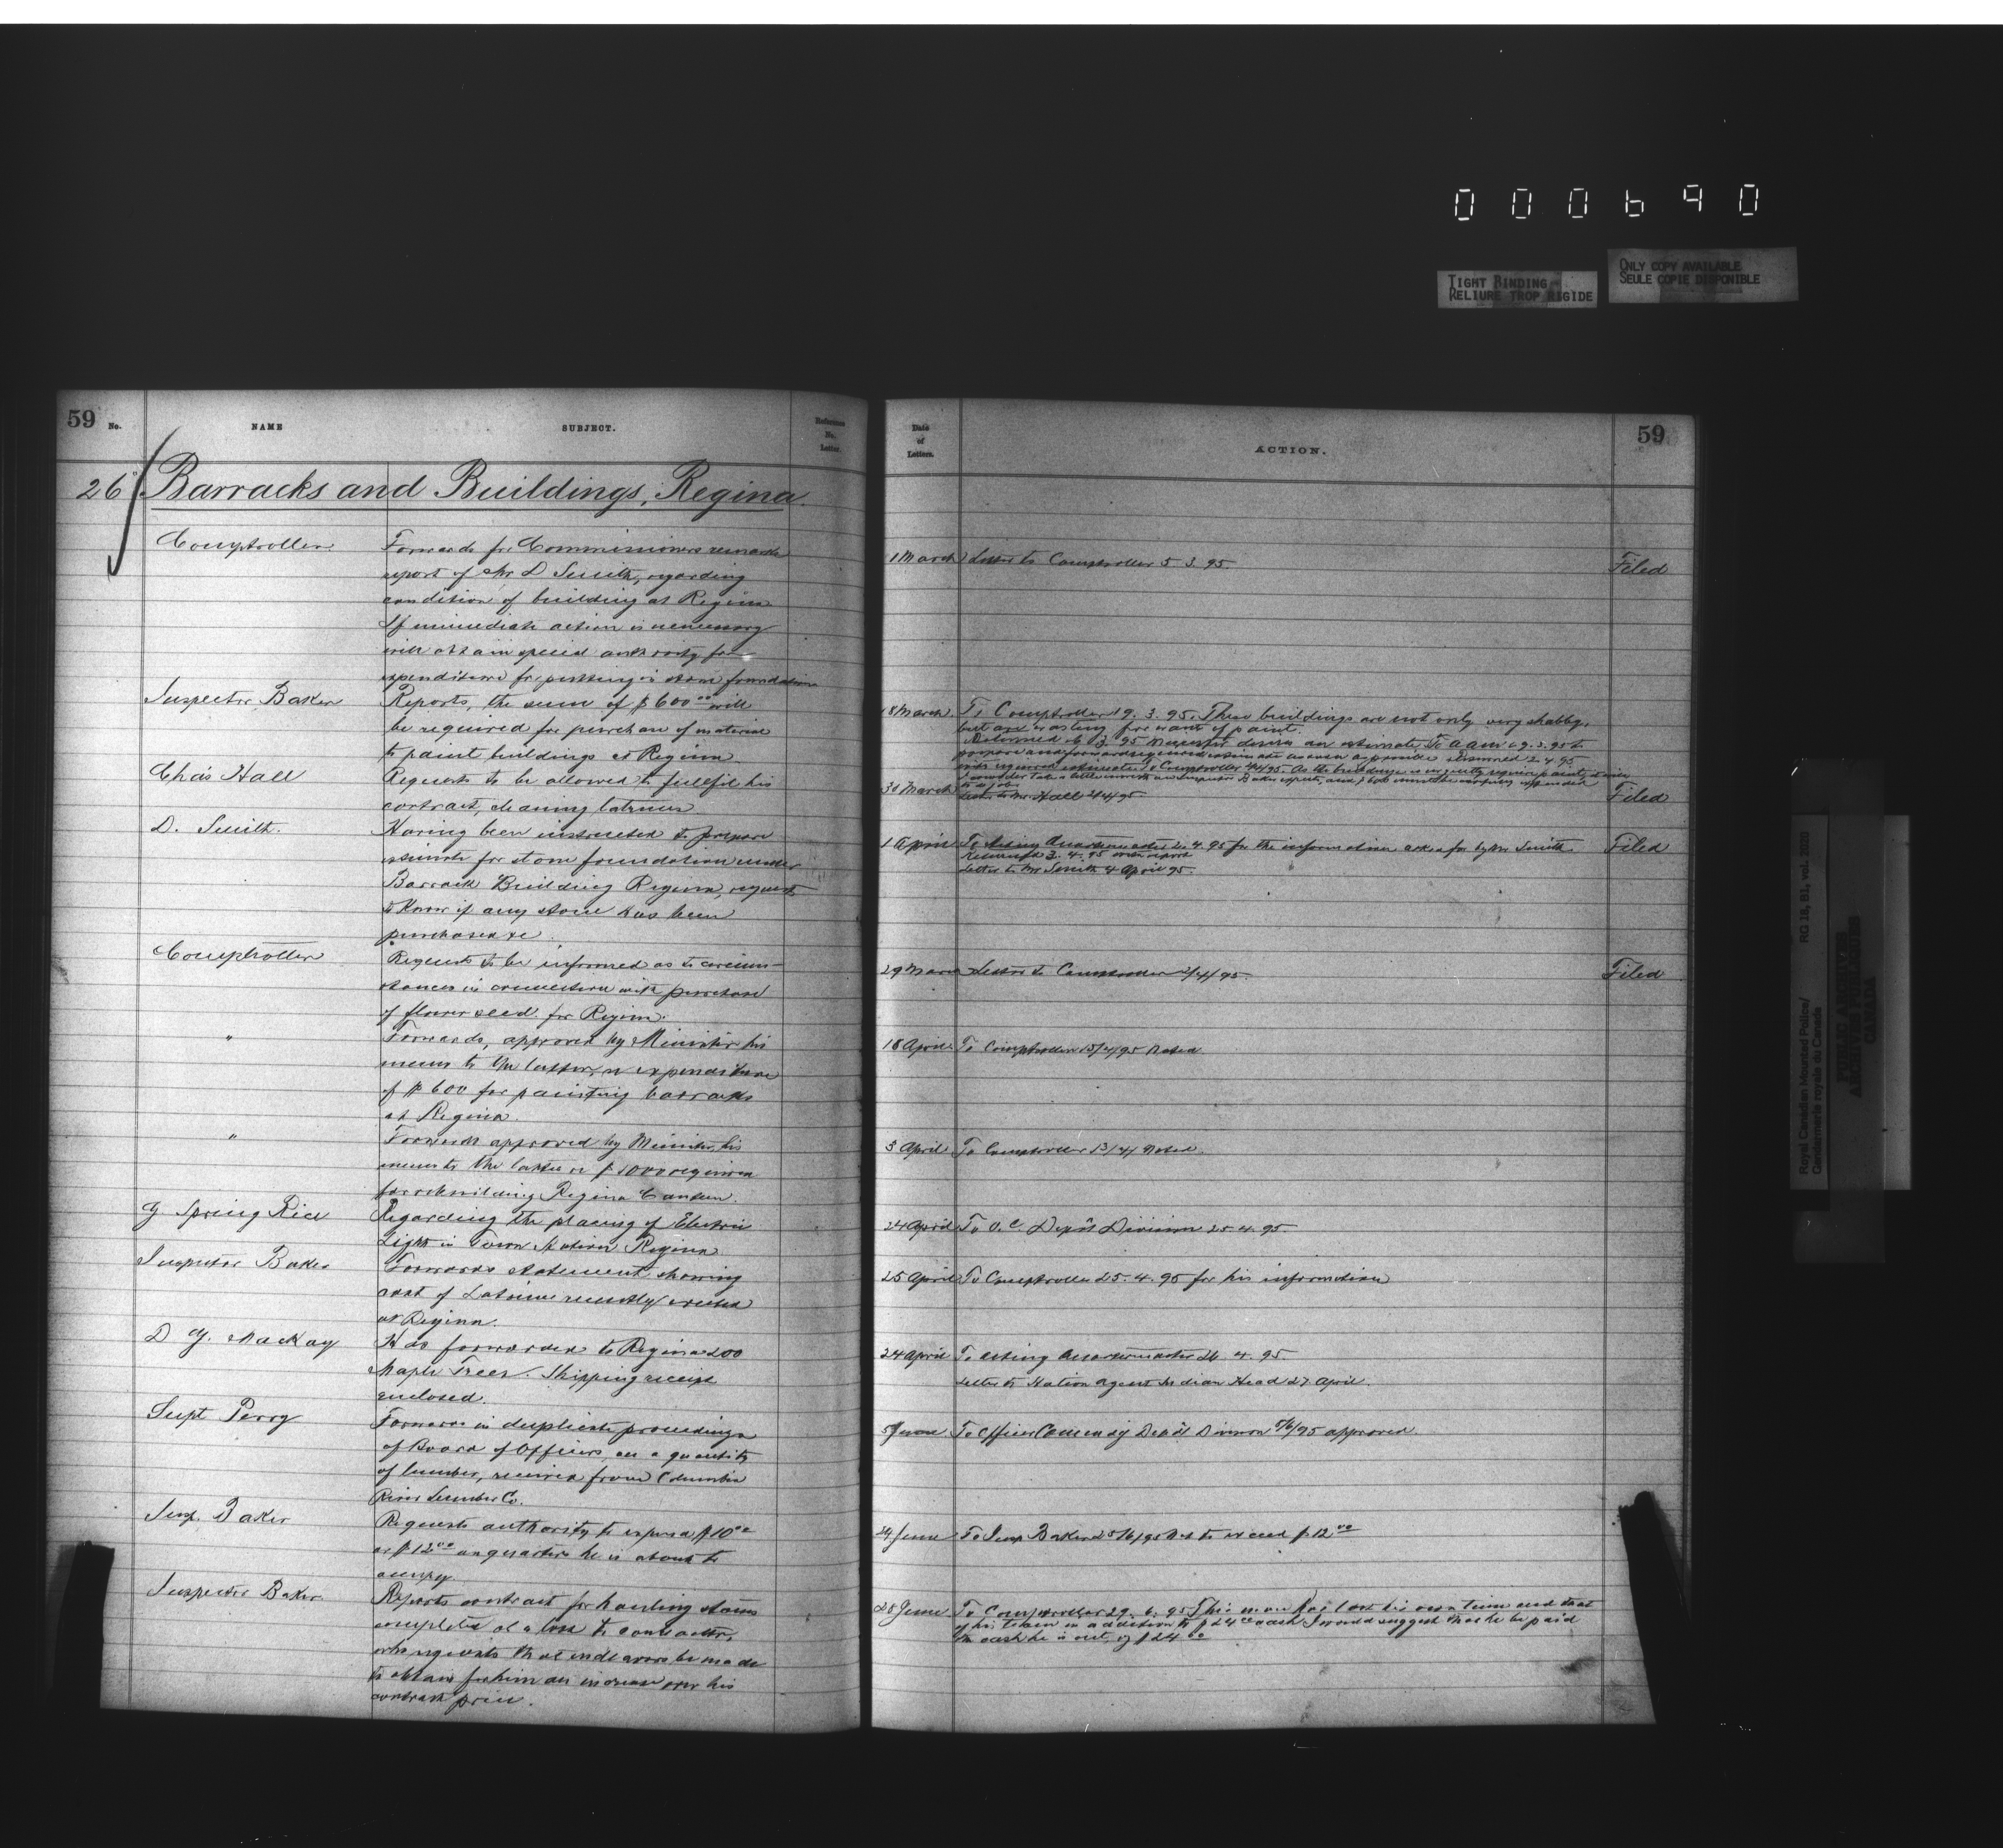 000690
TIGHT BINDING
RELIURE TROP RIGIDE
ONLY COPY AVAILABLE
SEULE COPIE DISPONIBLE
59 No. NAME SUBJECT. Reference No. Letter.
26 Barracks and Buildings, Regina.
Comptroller
Forwards for Commissioners remarks
report of Mr D Smith, regarding
condition of building at Regina
If immediate action is necessary
will obtain special authority for
expenditure for putting in stone foundation
Inspector Baker
Reports, the sum of $600 00 will
be required for purchase of material
to paint buildings at Regina
Chas Hall
Requests to be allowed to fullfil his
contract, cleaning latrines
D. Smith.
Having been instructed to prepare
estimate for stone foundation under
Barrack Building Regina, requests
to know if any stone has been
purchased &c
Comptroller
Requests to be informed as to circum-
stances in connection with purchase
of flower seed for Regina.
"
Forwards, approved by Minister his
memo to the latter, re expenditure
of $600 for painting barracks
at Regina.
"
Forwards approved by Minister, his
memo to the latter re $1000 required
for rebuilding Regina Canteen.
G Spring Rice
Regarding the placing of Electric
Light in Town Station Regina
Inspector Baker
Forwards statement showing
cost of Latrine recently erected
at Regina.
D G. MacKay
Has forwarded to Regina 200
Maple Trees. Shipping receipt
enclosed.
Supt Perry
Forwards in duplicate proceedings
of Board of Officers, on a quantity
of lumber, received from Columbia
River Lumber Co.
Insp. Baker
Requests authority to expend $10 00
or $12 00 on quarters he is about to
occupy
Inspector Baker
Reports contract for hauling stone
completed at a loss to contractor,
who requests that endeavors be made
to obtain for him an increase over his
contract price.
Date of Letters. ACTION. 59
1 March Letter to Comptroller 5 3. 95 Filed
18 March To Comptroller 19. 3. 95. These buildings are not only very shabby,
but are wasting for want of paint.
Returned 26 3 95 desires an estimate. To 29. 3. 95 to
prepare and forward required estimate as soon as possible Returned 2. 4. 95
with required estimate. To Comptroller 4/4/95. As the buildings
31 March Letter to Mr Hall 2/4/95 Filed
1 April To Acting Quartermaster 2. 4. 95 for the information asked for by Mr Smith Filed
Returned 3. 4. 95 with report
Letter to Mr Smith 4 April 95
29 March Letter to Comptroller 2/4/95 Filed
18 April To Comptroller 15/4/95 Noted
3 April To Comptroller 13/4/ Noted.
24 April To O. C. Depôt Division 25. 4. 95
25 April To Comptroller 25. 4. 95 for his information
24 April To Acting Quartermaster 26. 4. 95.
Letter to Station Agent Indian Head 27 April.
5 June To Officer Comming Depôt Division 5/6/95 approved.
24 June To Insp Baker 25/6/95 Not to exceed $12 00
28 June To Comptroller 29. 6. 95 This man has lost his own time and that
of his team in addition to $24 00 cash I would suggest that he be paid
the cash he is out, of $24 00
Royal Canadian Mounted Police/ RG 18, B1, vol. 2020
Gendarmerie royale du Canada
PUBLIC ARCHIVES
ARCHIVES PUBLIQUES
CANADA